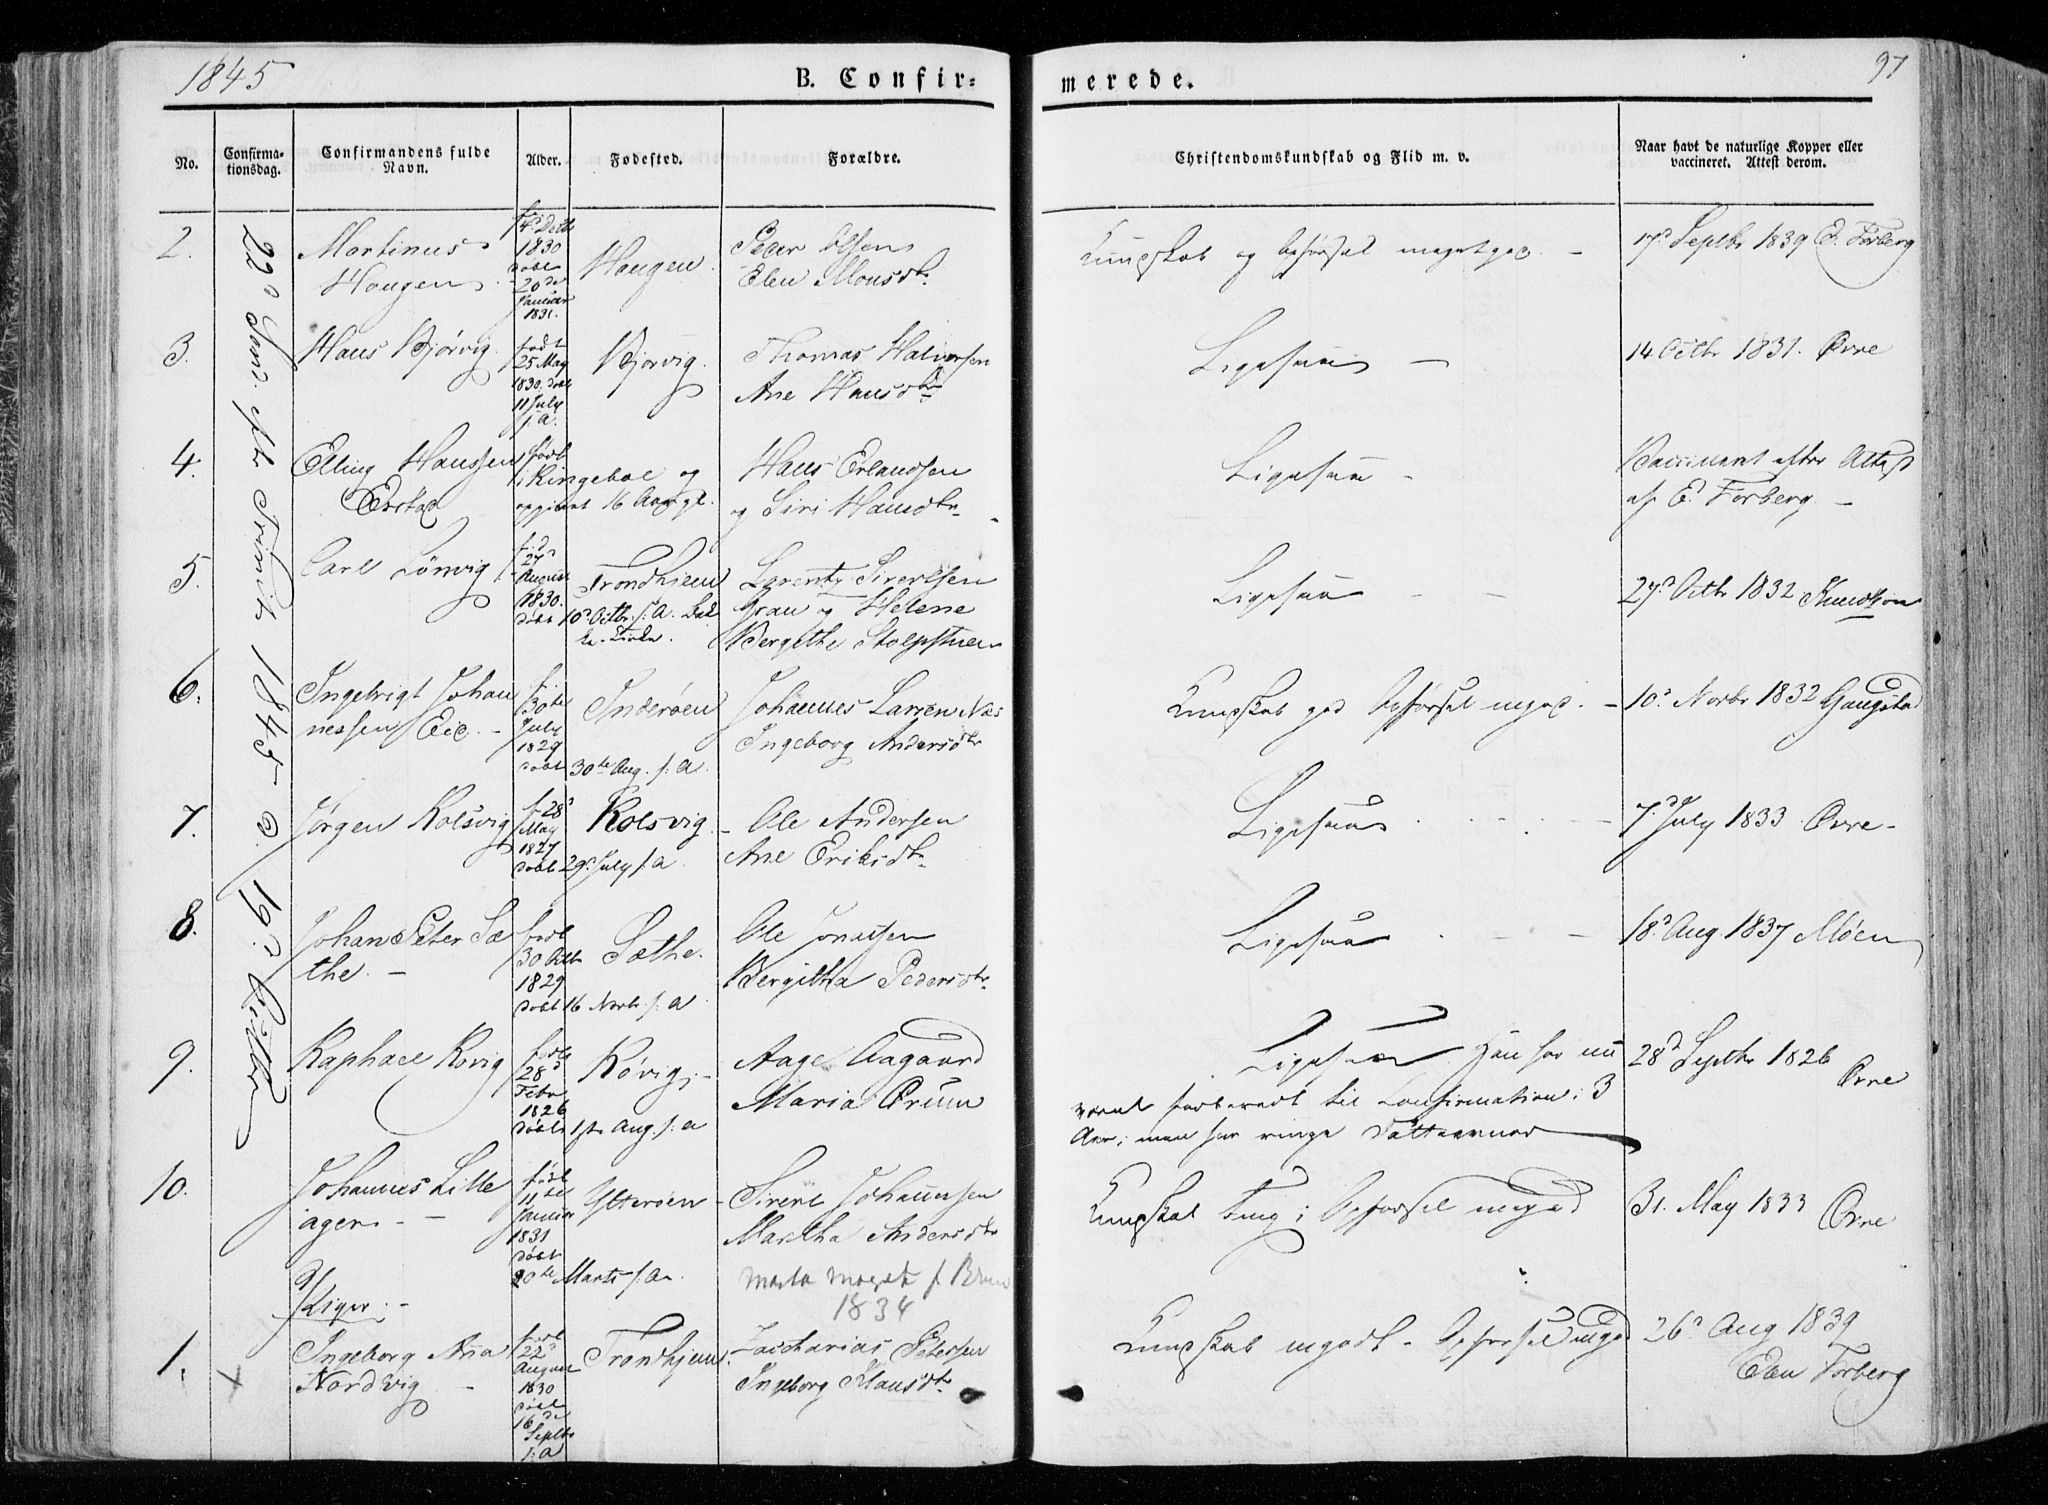 1845
B. Confir=
merede.
97
No.
Confirma-
tionsdag.
Confirmandens fulde
Navn.
Alder.
Fødested.
Forældre.
Christendomskundskab og Flid m. v.
Naar havt de naturlige Kopper eller
vaccineret. Attest derom.
22d Sønd. eft. Trinit. 1845 d. 19d Octbr.
2.
Martinus
Haugen
f. 4de Decbr
1830
døbt
20de
Januar
1831.
Haugen.
Peder Olsen
Elen Monsdtr.
Kundskab og Opførsel meget god. -
17d Septbr 1839 E. Forberg
3.
Hans Bjørvig
født
25 May
1830. døbt
11 July
s. a.
Bjørvig.
Thomas Halvorsen
Ane Hansdtr
Ligesaa -
14 Octbr 1831. Øvre
4.
Elling Hanssen
Erstad
født
i Ringeboe og
opgivet 16 Aar gl.
Hans Erlandsen
og Siri Hansdtr -
Ligesaa -
Vaccineret efter Attest
af E. Forberg -
5.
Carl Lönvig
fød
27d
August
1830.
døbt 10d Octbr. s. a.
Trondhjem
Lorentz Sivertsen
Grau og Helene
Bergithe
Ligesaa - -
27d Octbr 1832 Knudtzon
6.
Ingebrigt Johan
nessen Eid. -
f.
30te
July
1829
døbt 30te Aug. s. a.
Inderøen
Johannes Larsen Næs
Ingeborg Andersdtr
Kundskab god Opførsel mgod. -
10d Novbr 1832 Gangstad
7.
Jørgen Kolsvig
f. 28d
May
1827
døbt 29d July s. a.
Kolsvig.
- Ole Andersen
Ane Eriksdtr.
Ligesaa
7d July 1833 Øvre -
8.
Johan Peter Sæ
the. -
født
30 Octbr
1829
døbt 16 Novbr. s. a
Sæthe.
Ole Jonassen
Bergitha Pedersdtr.
Ligesaa - -
18d Aug 1837 Møen
9.
Raphael Røvig
født
28d
Febr
1826
døbt 1ste Aug. s. a
Røvig. -
Aage Aagaard
Maria Ørum
Ligesaa Han har nu
været forberedt til Confirmation i 3
Aar, men har ringe Fatteevner
28d Septbr 1826
Øvre
10.
Johannes Lille
ager. -
født
11te
Januar
1831
døbt
20de Marts s. a.
Ytterøen -
Sivert Johannsen
Martha Andersdtr
1834
Kundskab Opførsel megod
31. May 1833 Øvre
Piger. -
1.
Ingeborg Ana
Nordvig -
født
22d
August
1830
døbt
16de
Septbr
s. a
Trondhjem.
Zacharias Petersen
Ingeborg Klausdtr
Kundskab mgodt - Opførsel mgod
26d Aug 1839
Forberg